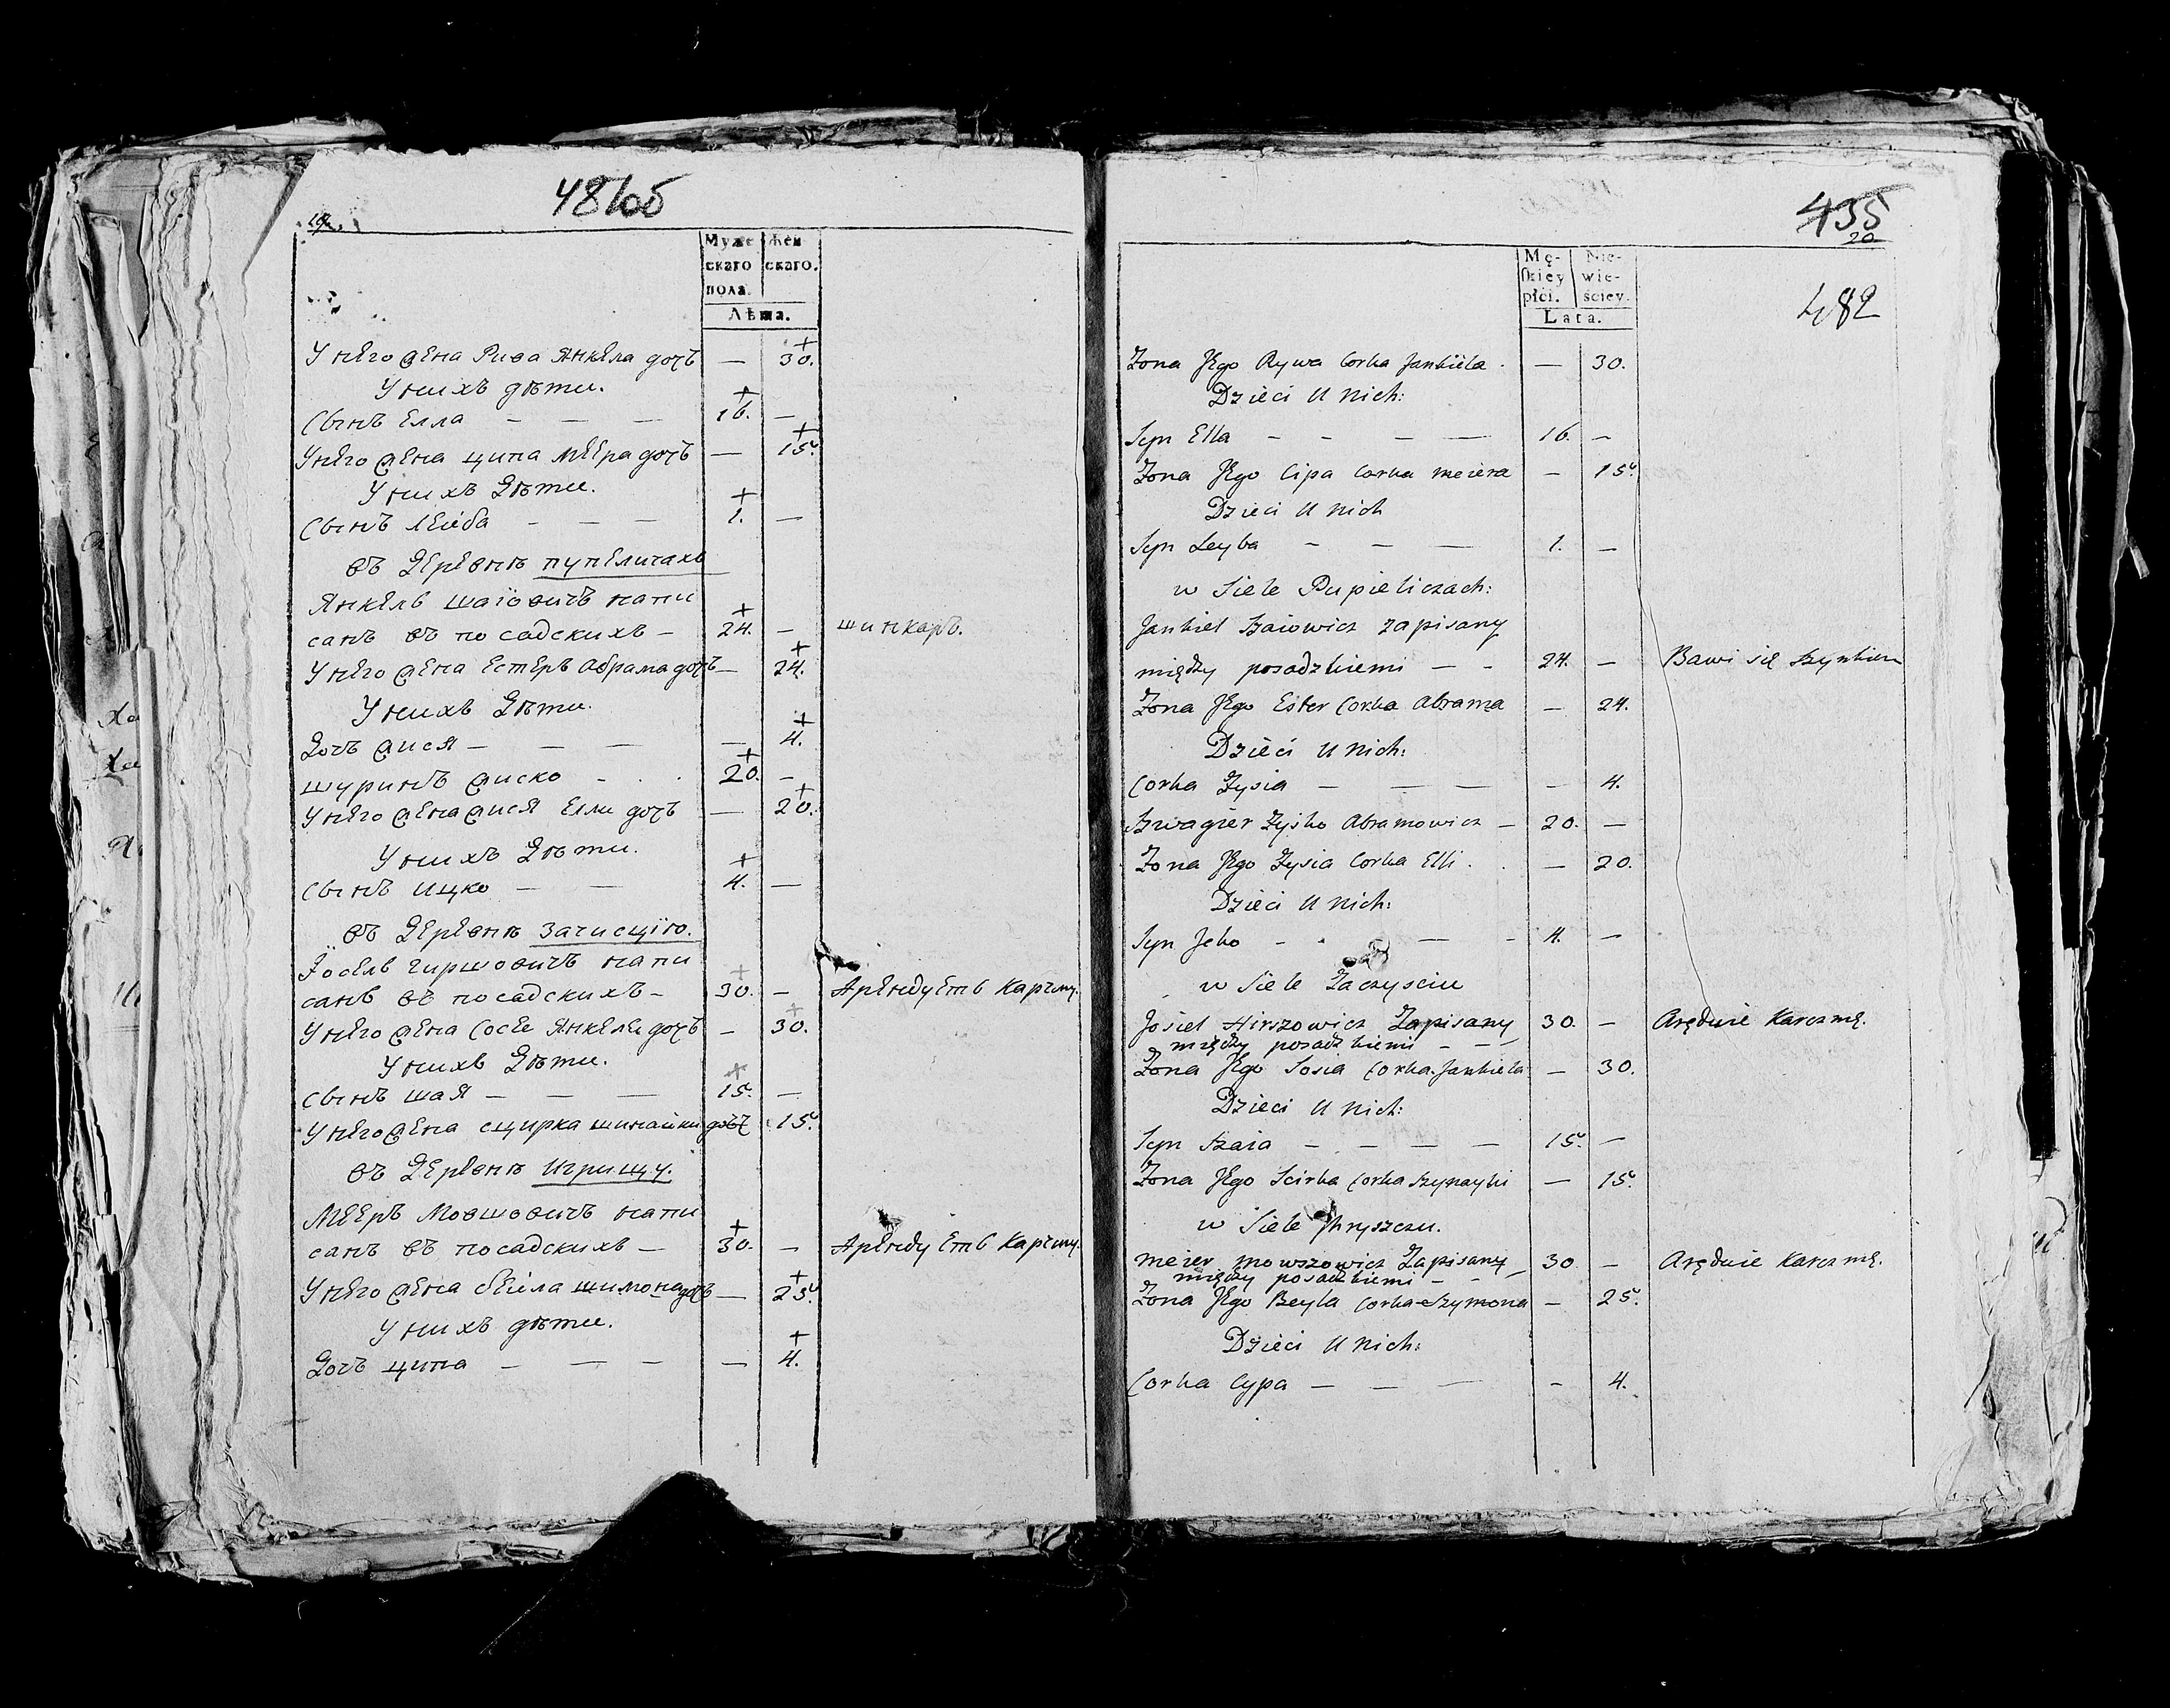 481об
19.
Муже
скаго
пола.
Жен
скаго.
Лѣта.
У него жена Рива Янкела дочь — 30.
У нихъ дѣти.
Сынъ Елла — — — 16. —
У него жена Ципа Меера дочь — 15.
У нихъ Дѣти.
Сынъ Лейба — — — 1. —
въ Деревнѣ Пупеличахъ
Янкель Шаiовичъ напи
санъ въ посадскихъ — 24. — шинкаръ.
У него жена Естеръ Абрама дочь — 24.
У нихъ Дѣти.
Дочь Жися — — — — 4.
шуринъ Жиско — 20. —
У него жена Жися Елли дочь — 20.
У нихъ Дѣти.
Сынъ Ицко — — 4. —
въ Деревнѣ Зачисцiю.
Iосель Гиршовичъ напи
санъ въ посадскихъ — 30. — Арендуетъ Карчму.
У него жена Сосе Янкеля дочь — 30.
У нихъ Дѣти.
Сынъ Шая — — — 15. —
У него жена Сцирка Шинайки дочь 15.
въ Деревнѣ Игрищу.
Мееръ Мовшовичъ напи
санъ въ посадскихъ — 30. — Арендуетъ Карчму.
У него жена Бейла Шимона дочь — 25.
У нихъ дѣти.
Дочь Ципа — — — — 4.
435
20.
482
Mę-
ſkiey
płci.
Nie-
wie-
ściey.
Lata.
Żona Jego Rywa Corka Jankiela — 30.
Dzieci u nich:
Syn Ella — — — — 16. —
Żona Jego Cipa Corka Meiera — 15.
Dzieci u nich
Syn Leyba — — — 1. —
w Siele Pupieliczach:
Jankiel Szaiowicz zapisany
między posadzkiemi — — 24. — Bawi się szynkiem
Żona Jego Ester Corka Abrama — 24.
Dzieci u nich:
Corka Żysia — — — — 4.
Szwagier Żysko Abramowicz — 20. —
Żona Jego Żysia Corka Elli — 20.
Dzieci u nich:
Syn Jcko — — — 4. —
w Siele Zaczysciu
Josiel Hirszowicz Zapisany 30. — Aręduie Karczmę.
między posadzkiemi — —
Żona Jego Sosia Corka Jankiela — 30.
Dzieci u nich:
Syn Szaia — — — — 15. —
Żona Jego Scirka Corka Szynayki — 15.
w Siele Jhryszczu.
Meier Mowszowicz Zapisany 30 — Aręduie Karczmę.
między posadzkiemi — —
Żona Jego Beyla Corka Szymona — 25.
Dzieci u nich:
Corka Cypa — — — — 4.